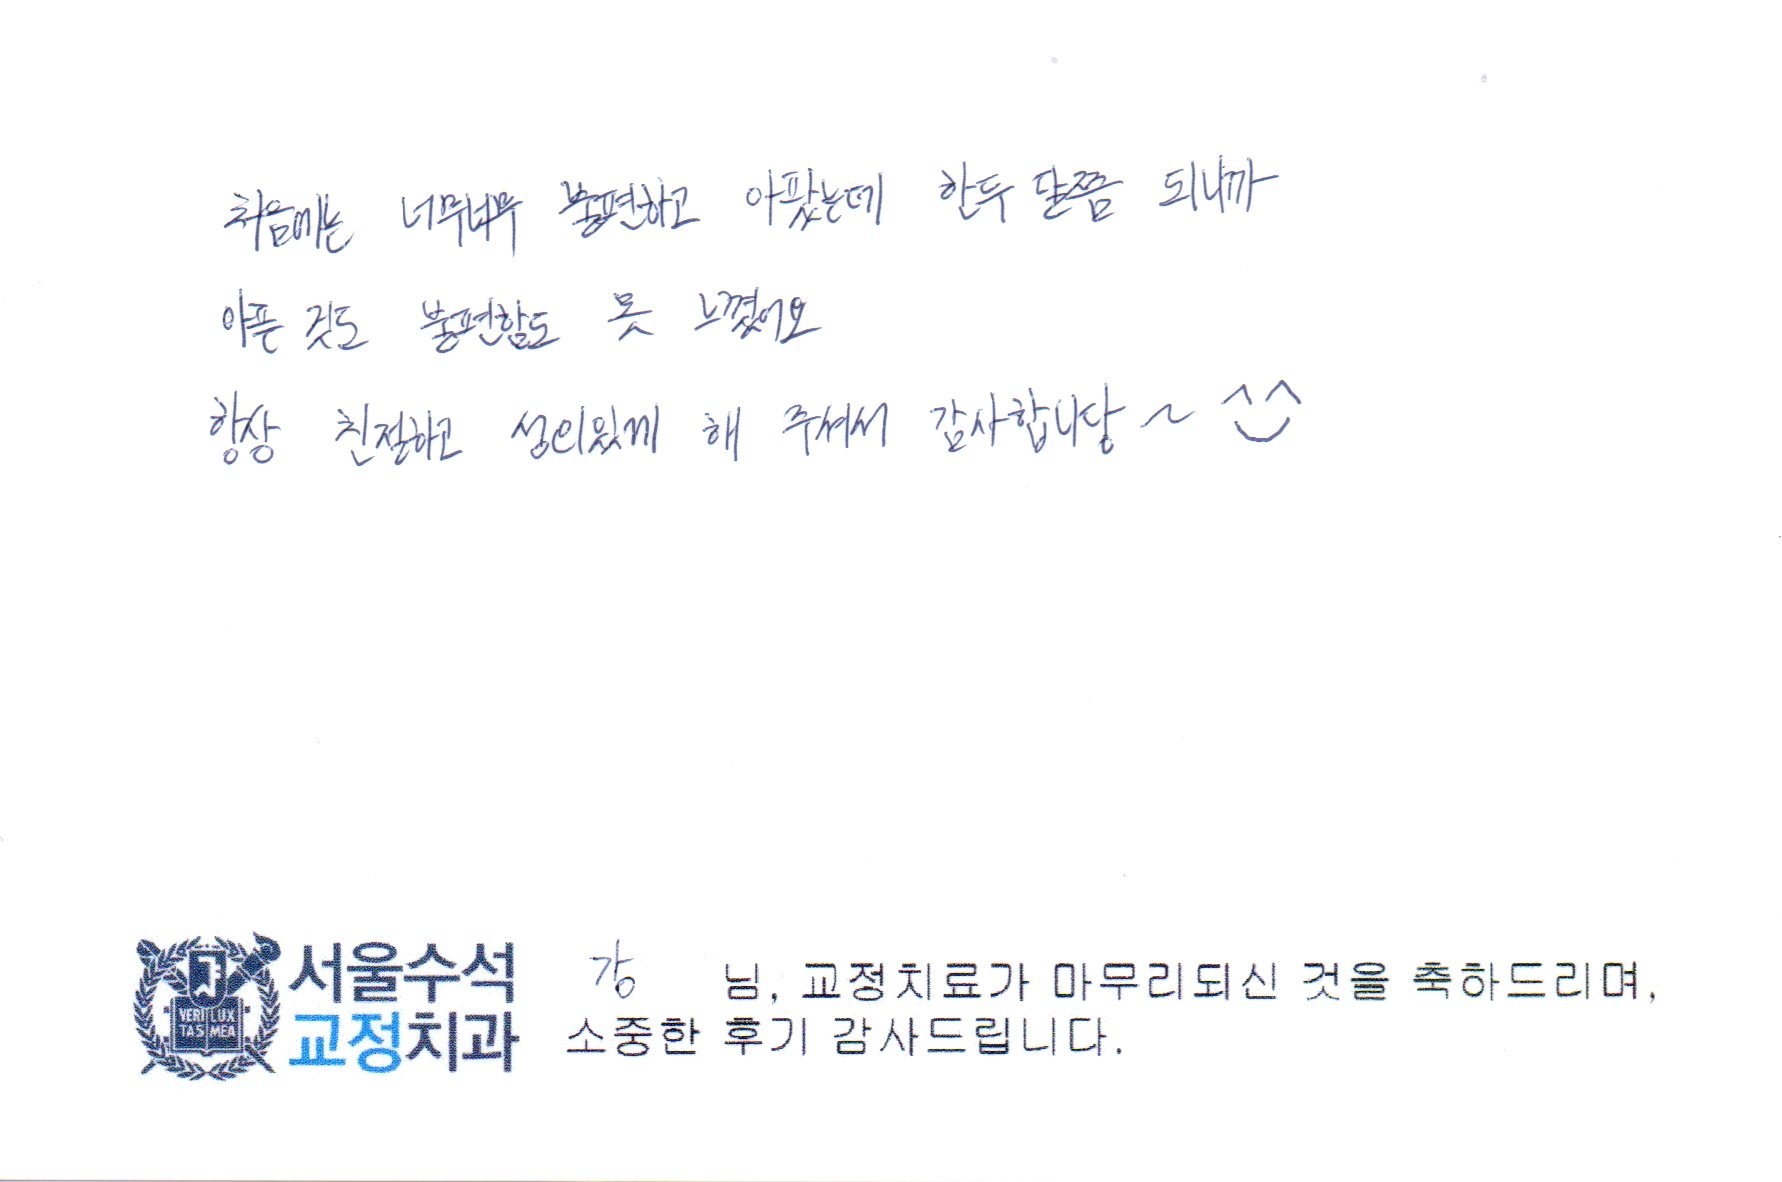 처음에는 너무너무 불편하고 아팠는데 한두 달쯤 되니까
아픈 것도 불편함도 못 느꼈어요
항상 친절하고 성의있게 해 주셔서 감사합니당~ ^^
서울수석
교정치과
VERI LUX
TAS MEA
강 님, 교정치료가 마무리되신 것을 축하드리며,
소중한 후기 감사드립니다.